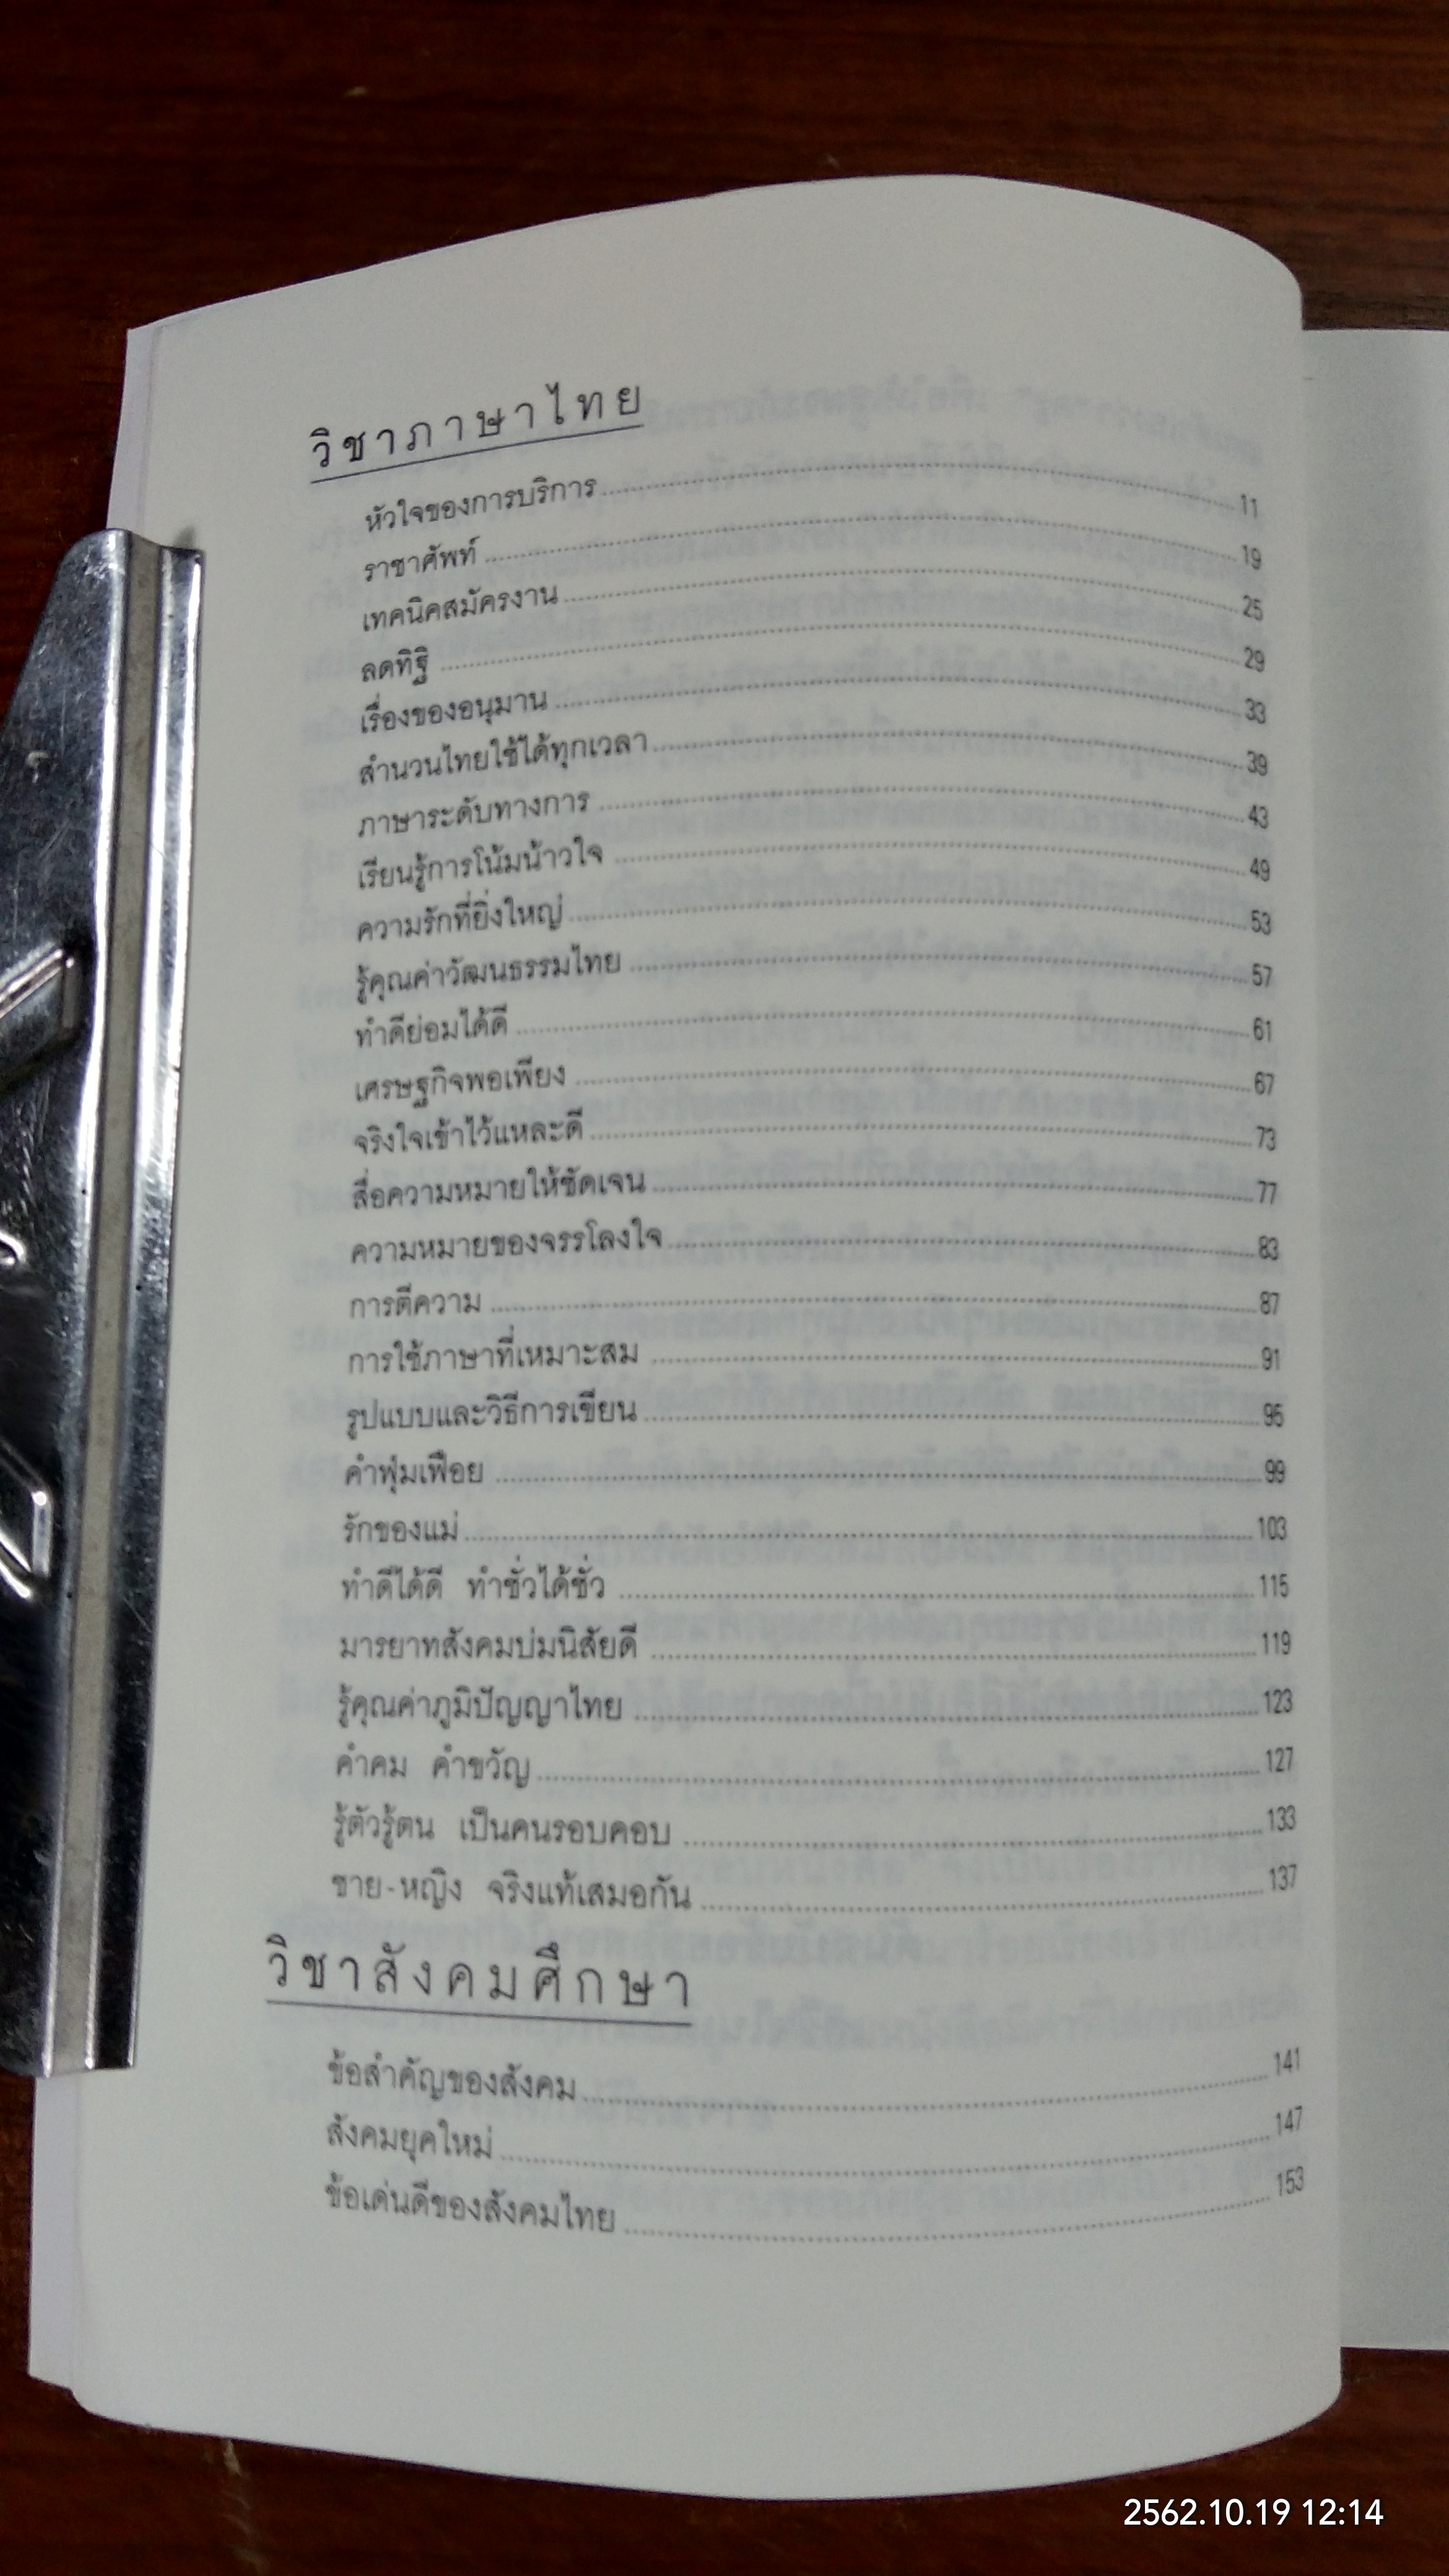 วิชาภาษาไทย
หัวใจของการบริการ 11
ราชาศัพท์ 19
เทคนิคสมัครงาน 25
ลดทิฐิ 29
เรื่องของอนุมาน 33
สำนวนไทยใช้ได้ทุกเวลา 39
ภาษาระดับทางการ 43
เรียนรู้การโน้มน้าวใจ 49
ความรักที่ยิ่งใหญ่ 53
รู้คุณค่าวัฒนธรรมไทย 57
ทำดีย่อมได้ดี 61
เศรษฐกิจพอเพียง 67
จริงใจเข้าไว้แหละดี 73
สื่อความหมายให้ชัดเจน 77
ความหมายของจรรโลงใจ 83
การตีความ 87
การใช้ภาษาที่เหมาะสม 91
รูปแบบและวิธีการเขียน 95
คำฟุ่มเฟือย 99
รักของแม่ 103
ทำดีได้ดี ทำชั่วได้ชั่ว 115
มารยาทสังคมบ่มนิสัยดี 119
รู้คุณค่าภูมิปัญญาไทย 123
คำคม คำขวัญ 127
รู้ตัวรู้ตน เป็นคนรอบคอบ 133
ชาย-หญิง จริงแท้เสมอกัน 137
วิชาสังคมศึกษา
ข้อสำคัญของสังคม 141
สังคมยุคใหม่ 147
ข้อเด่นดีของสังคมไทย 153
2562.10.19 12:14